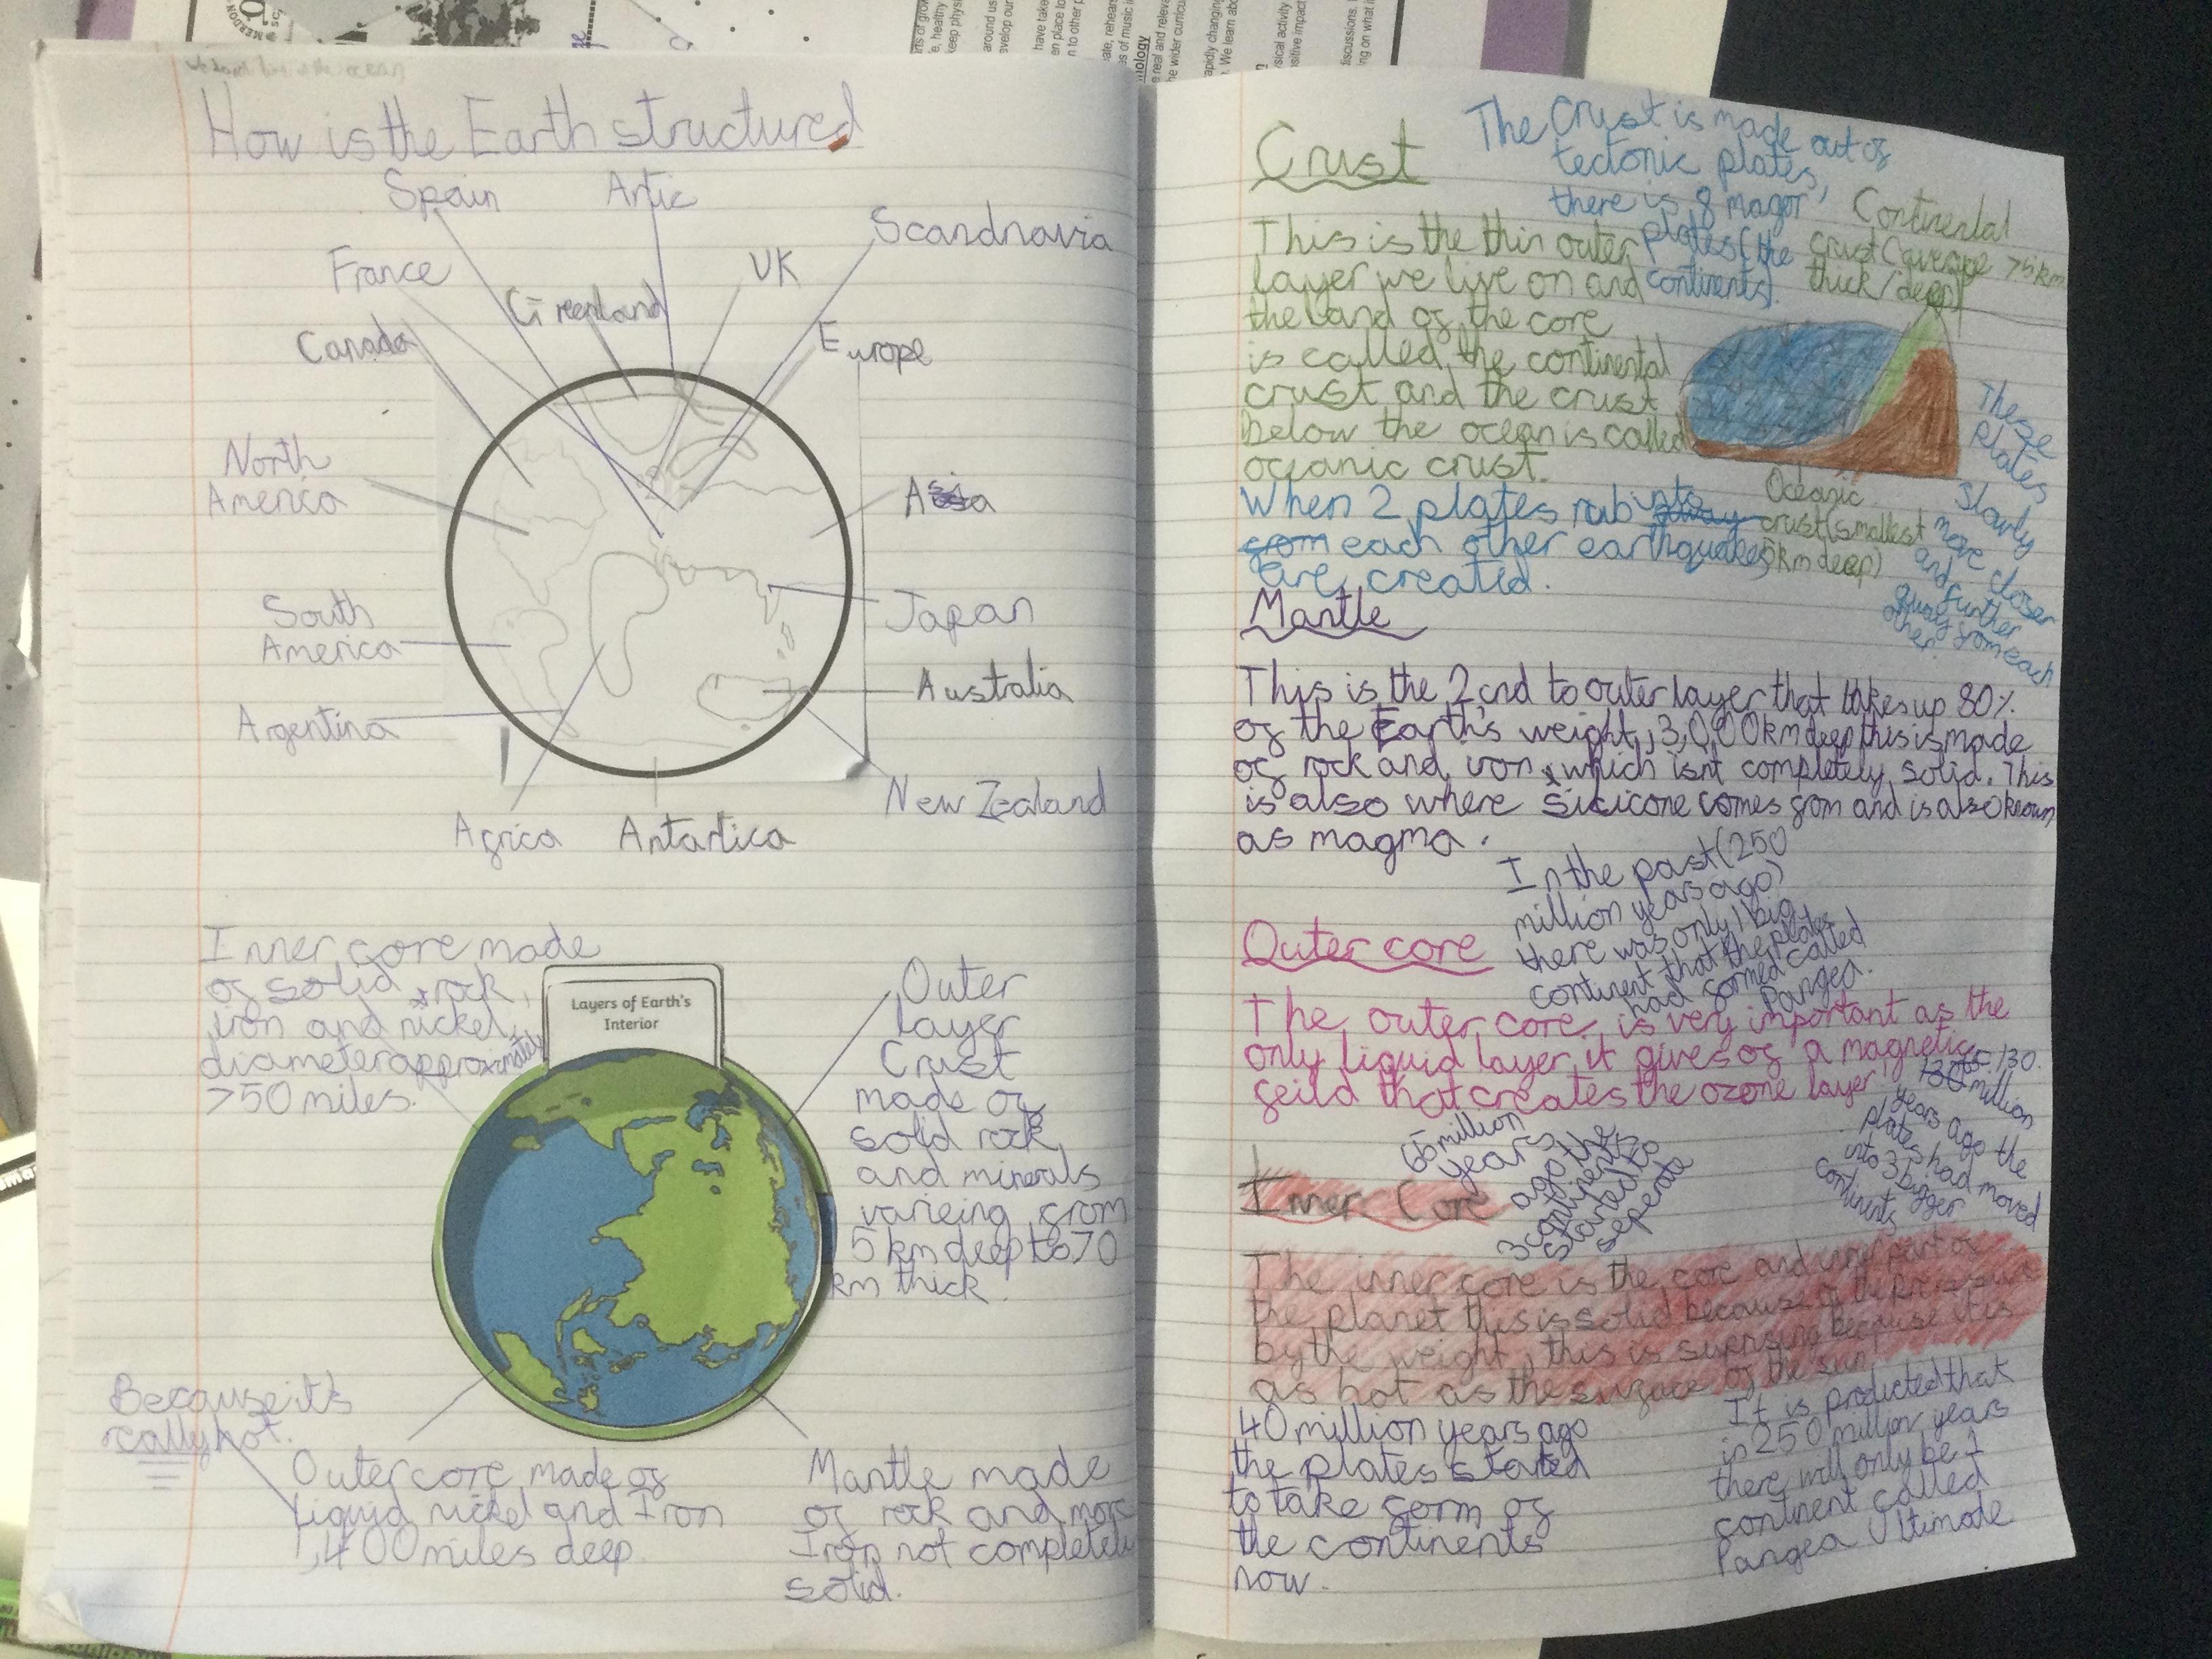 How is the Earth structured
Spain
Artic
Scandnavia
France
UK
Greenland
Canada
Europe
North
America
Asia
South
America
Japan
Argentina
Australia
New Zealand
Africa
Antartica
Inner core made
of solid rock,
iron and nickel,
diameter approximately
750 miles.
Layers of Earth's
Interior
Outer
layer
Crust
made of
solid rock
and minerals
varieing from
5 km deep to 70
km thick.
Because it's
really hot.
Outer core made of
liquid nickel and Iron
1,400 miles deep.
Mantle made
of rock and more
Iron not completely
solid.
Crust
The Crust is made out of
tectonic plates,
there is 8 magor
plates (the
continents).
Continental
crust (average 75km
thick/deep)
This is the thin outer
layer we live on and
the land of the core
is called the continental
crust and the crust
below the ocean is called
oceanic crust.
Oceanic
crust (smallest
5km deep)
These
plates
slowly
move closer
and further
away from each
other.
When 2 plates rub into away
from each other earthquakes
are created.
Mantle
This is the 2cnd to outer layer that takes up 80%
of the Earth's weight, 3,000km deep this is made
of rock and iron, which isnt completely solid. This
is also where silicicone comes from and is also known
as magma.
In the past (250
million years ago)
there was only 1 big
continent that the plates
had formed called
Pangea.
Outer core
The outer core is very important as the
only liquid layer it gives of a magnetic
feild that creates the ozone layer.
130
million
years ago the
plates had moved
into 3 bigger
continents
65 million
years
ago the
3 continents
started to
seperate
Inner Core
The inner core is the core and inner part of
the planet this is solid because of the pressure
by the weight, this is suprising because it is
as hot as the surface of the sun!
40 million years ago
the plates started
to take form of
the continents
now.
It is predicted that
in 250 million years
there will only be 1
continent called
Pangea Ultimade